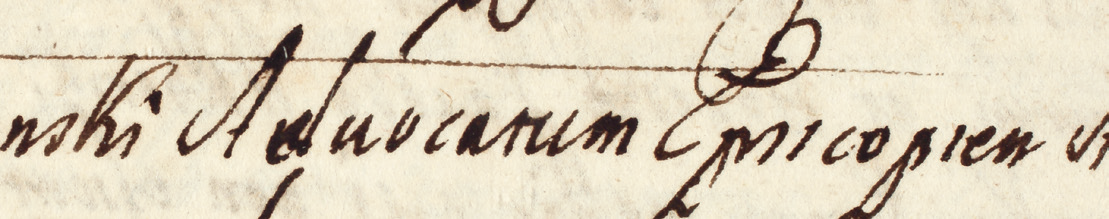 nski Advocatum Episcopien